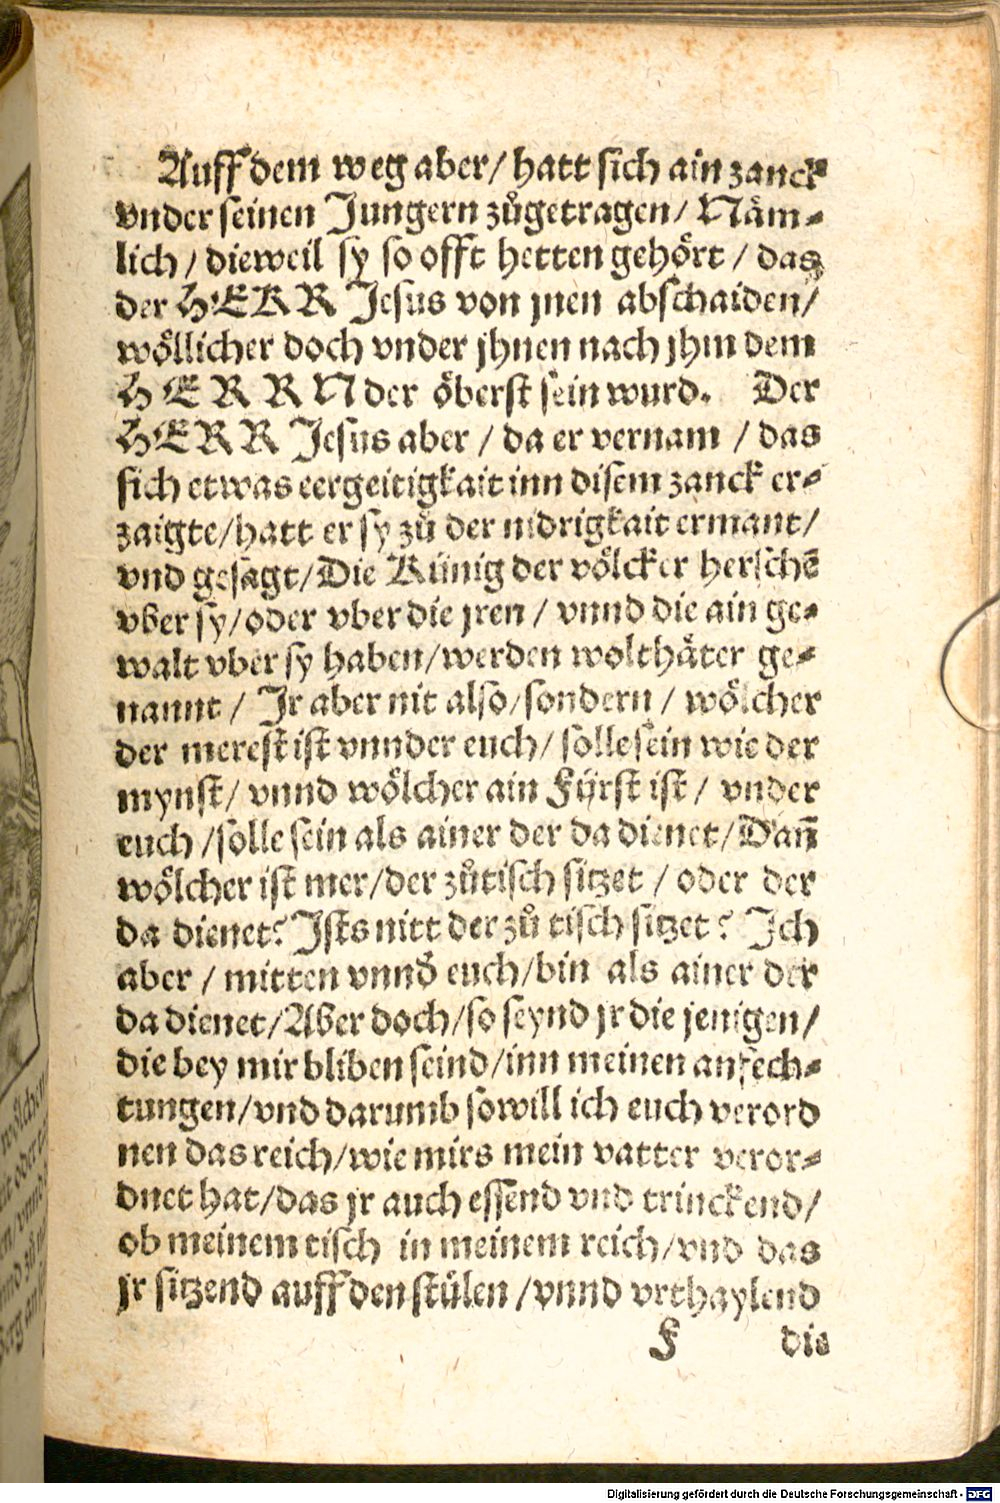 Auff dem weg aber/ hatt sich ain zanck
vnder seinen Jungern zůgetragen/ Näm⸗
lich/ dieweil sy so offt hetten gehört/ das
der HERR Jesus von jnen abschaiden/
wöllicher doch vnder jhnen nach jhm dem
HERRN der öberst sein wurd. Der
HERR Jesus aber/ da er vernam/ das
sich etwas eergeitigkait inn disem zanck er⸗
zaigte/ hatt er sy zů der nidrigkait ermant/
vnd gesagt/ Die Künig der völcker herschē
vber sy/ oder vber die jren/ vnnd die ain ge⸗
walt vber sy haben/ werden wolthäter ge⸗
nannt/ Jr aber nit also/ sondern/ wölcher
der merest ist vnnder euch/ solle sein wie der
mynst/ vnnd wölcher ain Fürst ist/ vnder
euch/ solle sein als ainer der da dienet/ Dañ
wölcher ist mer/ der zůtisch sitzet/ oder der
da dienet? Ists nitt der zů tisch sitzet? Ich
aber/ mitten vnnd̄ euch/ bin als ainer der
da dienet/ Aber doch/ so seynd jr die jenigen/
die bey mir bliben seind/ inn meinen anfech⸗
tungen/ vnd darumb so will ich euch verord
nen das reich/ wie mirs mein vatter veror⸗
dnet hat/ das jr auch essend vnd trinckend/
ob meinem tisch in meinem reich/ vnd das
jr sitzend auff den stülen/ vnnd vrthaylend
F die
Digitalisierung gefördert durch die Deutsche Forschungsgemeinschaft - DFG